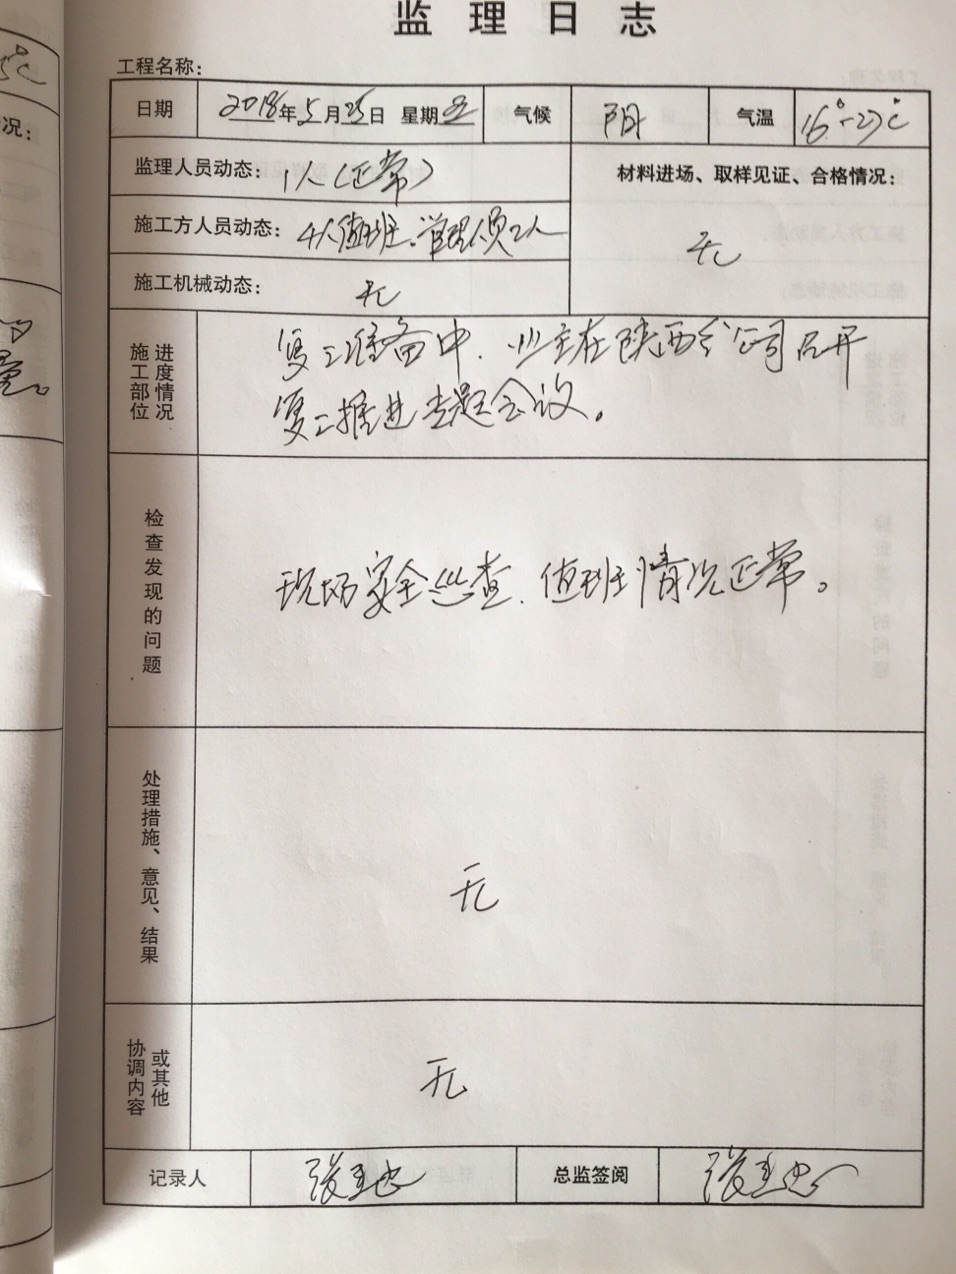 监理日志
工程名称：
日期 2018年5月25日 星期五 气候 阴 气温 16°-27°C
监理人员动态： 1人（正常） 材料进场、取样见证、合格情况：
施工方人员动态： 4人值班。管理人员2人 无
施工机械动态： 无
施工部位 进度情况 复工准备中，业主在陕西分公司召开
复工推进专题会议。
检查发现的问题 现场安全巡查，值班情况正常。
处理措施、意见、结果 无
协调内容 或其他 无
记录人 总监签阅
况：